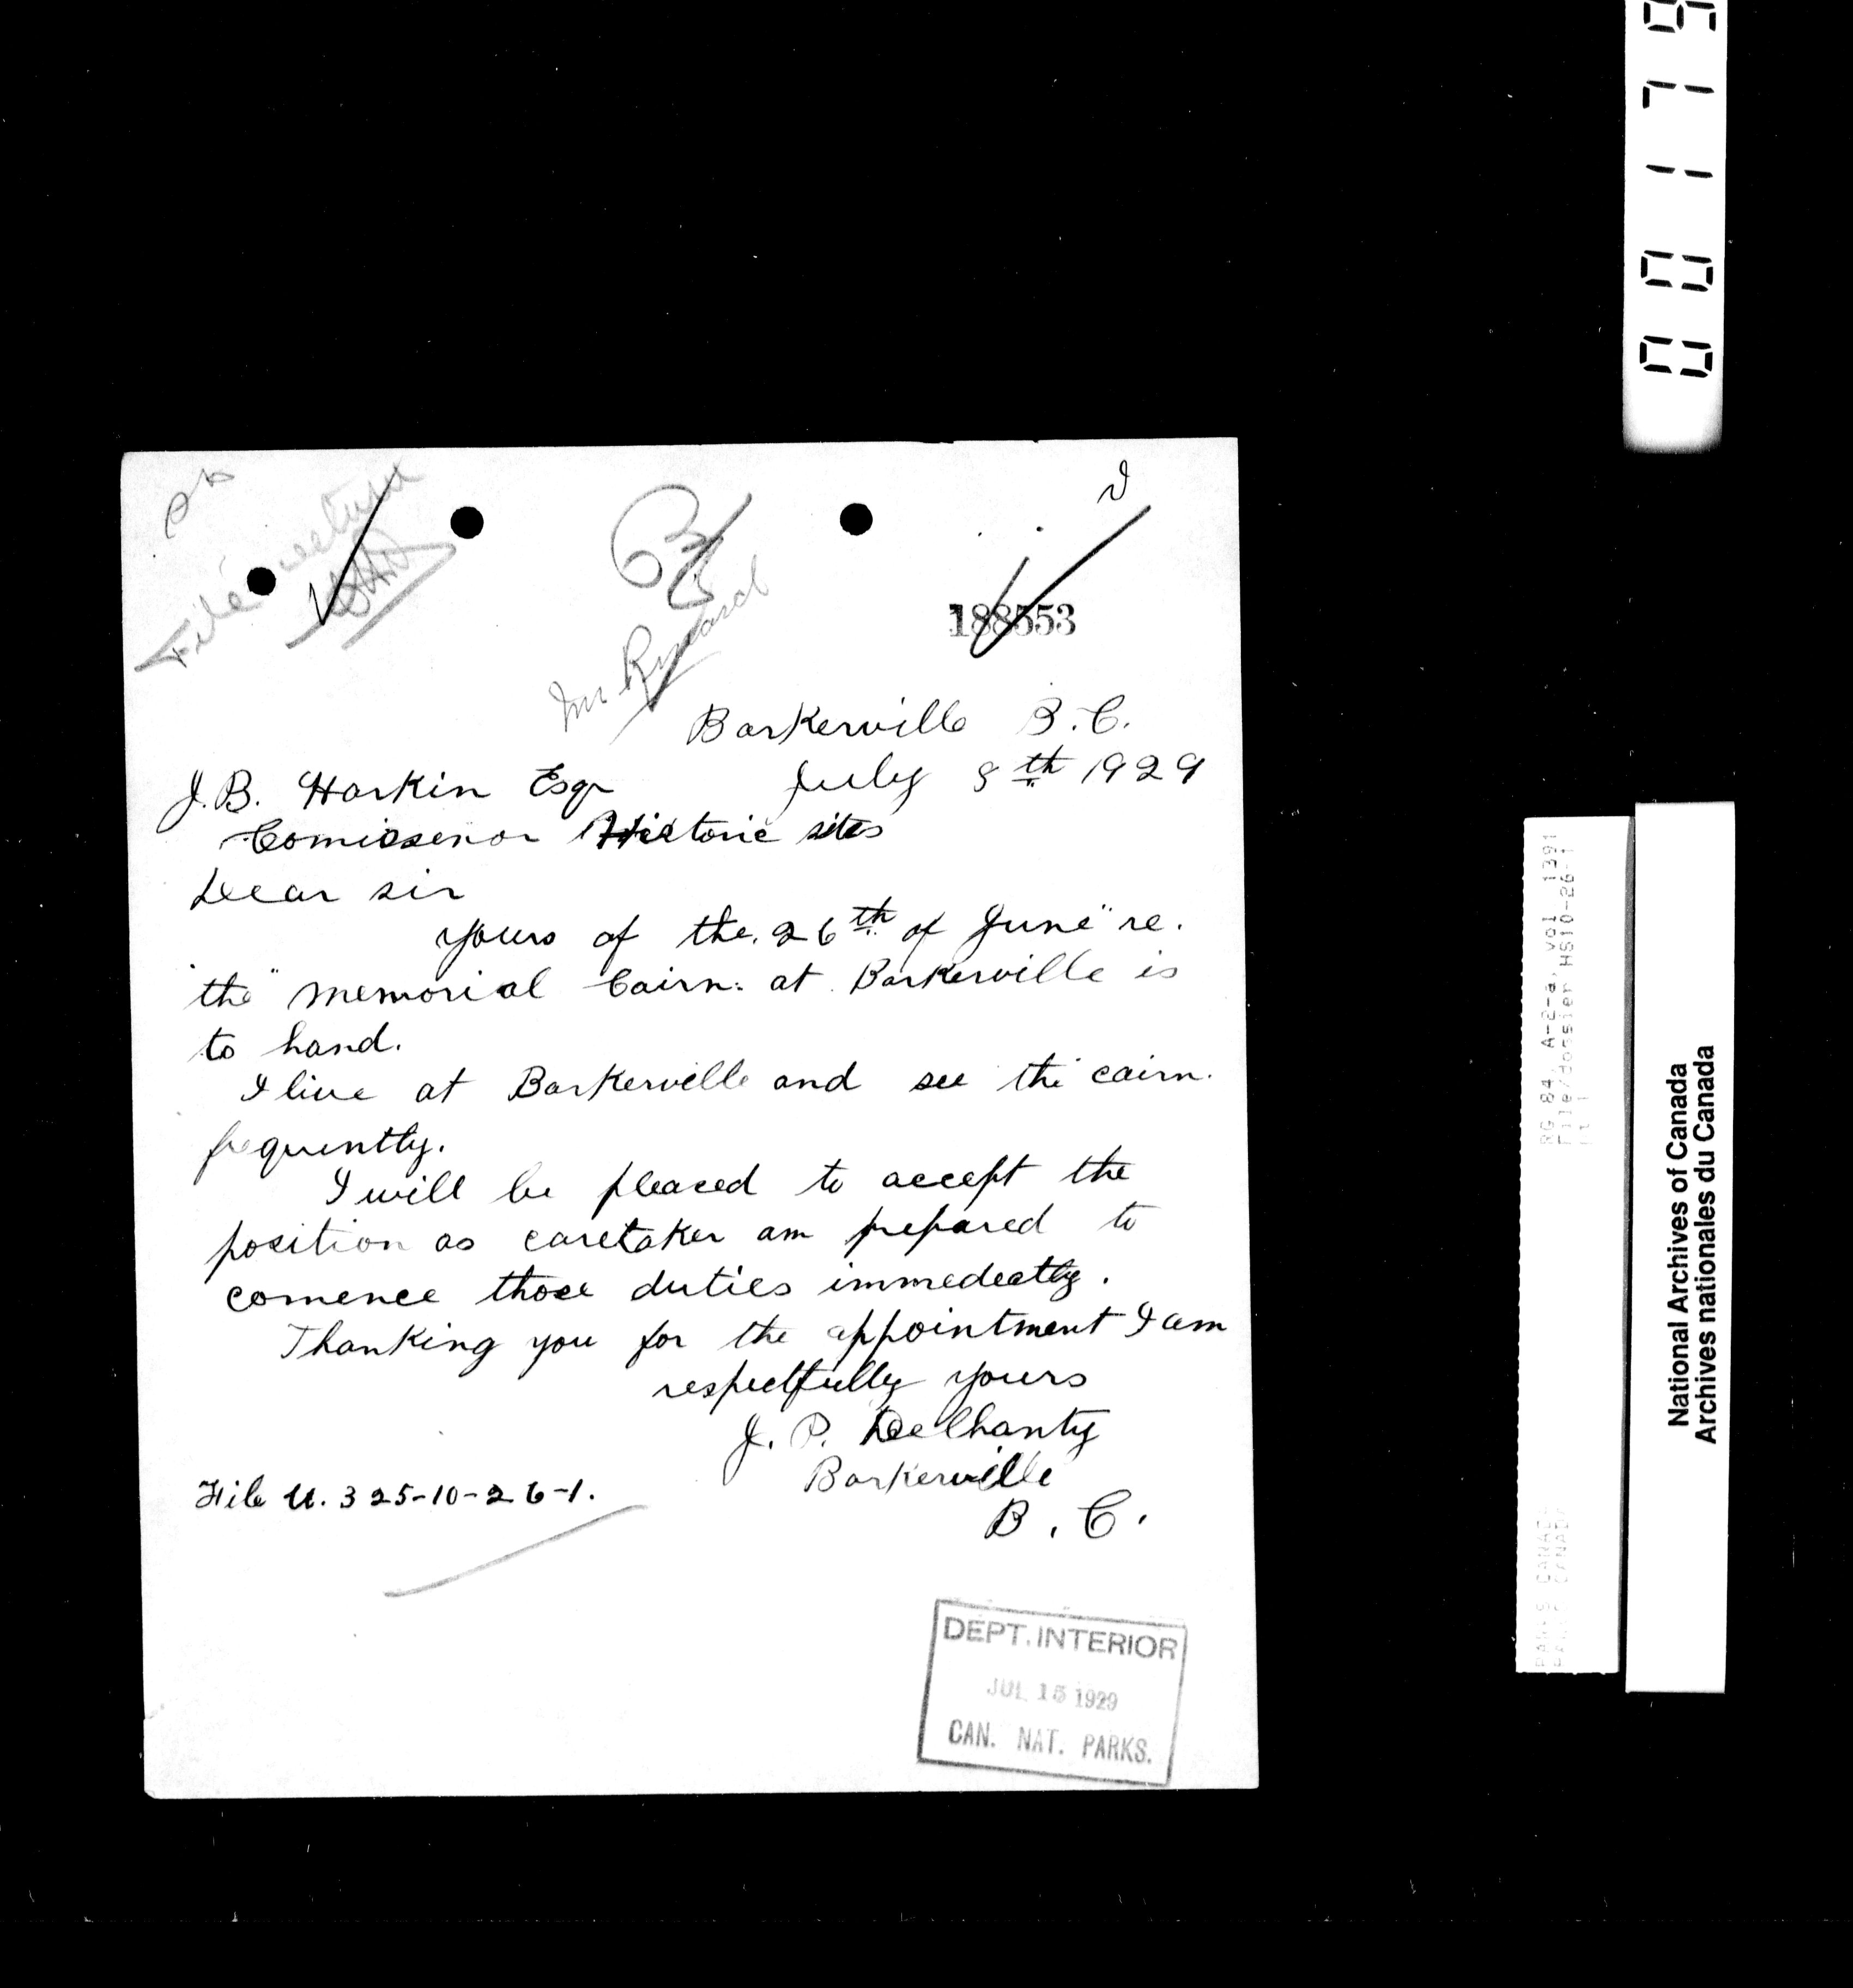 001179
File
188553
Barkerville B.C.
July 8th 1929
J.B. Harkin Esqr
Comissenor Historic sites
Dear sir
yours of the 26th of June "re.
the" memorial Cairn. at Barkerville is
to hand.
I live at Barkerville and see the cairn.
frequently.
I will be pleased to accept the
position as caretaker am prepared to
comence those duties immedeatly.
Thanking you for the appointment I am
respectfully yours
J. P. Delhanty
Barkerville
B. C.
File U. 325-10-26-1.
DEPT. INTERIOR
JUL 15 1929
CAN. NAT. PARKS.
RG 84, A-2-a, vol 1391
File/dossier HS10-26-1
pt 1
PARKS CANADA
PARCS CANADA
National Archives of Canada
Archives nationales du Canada